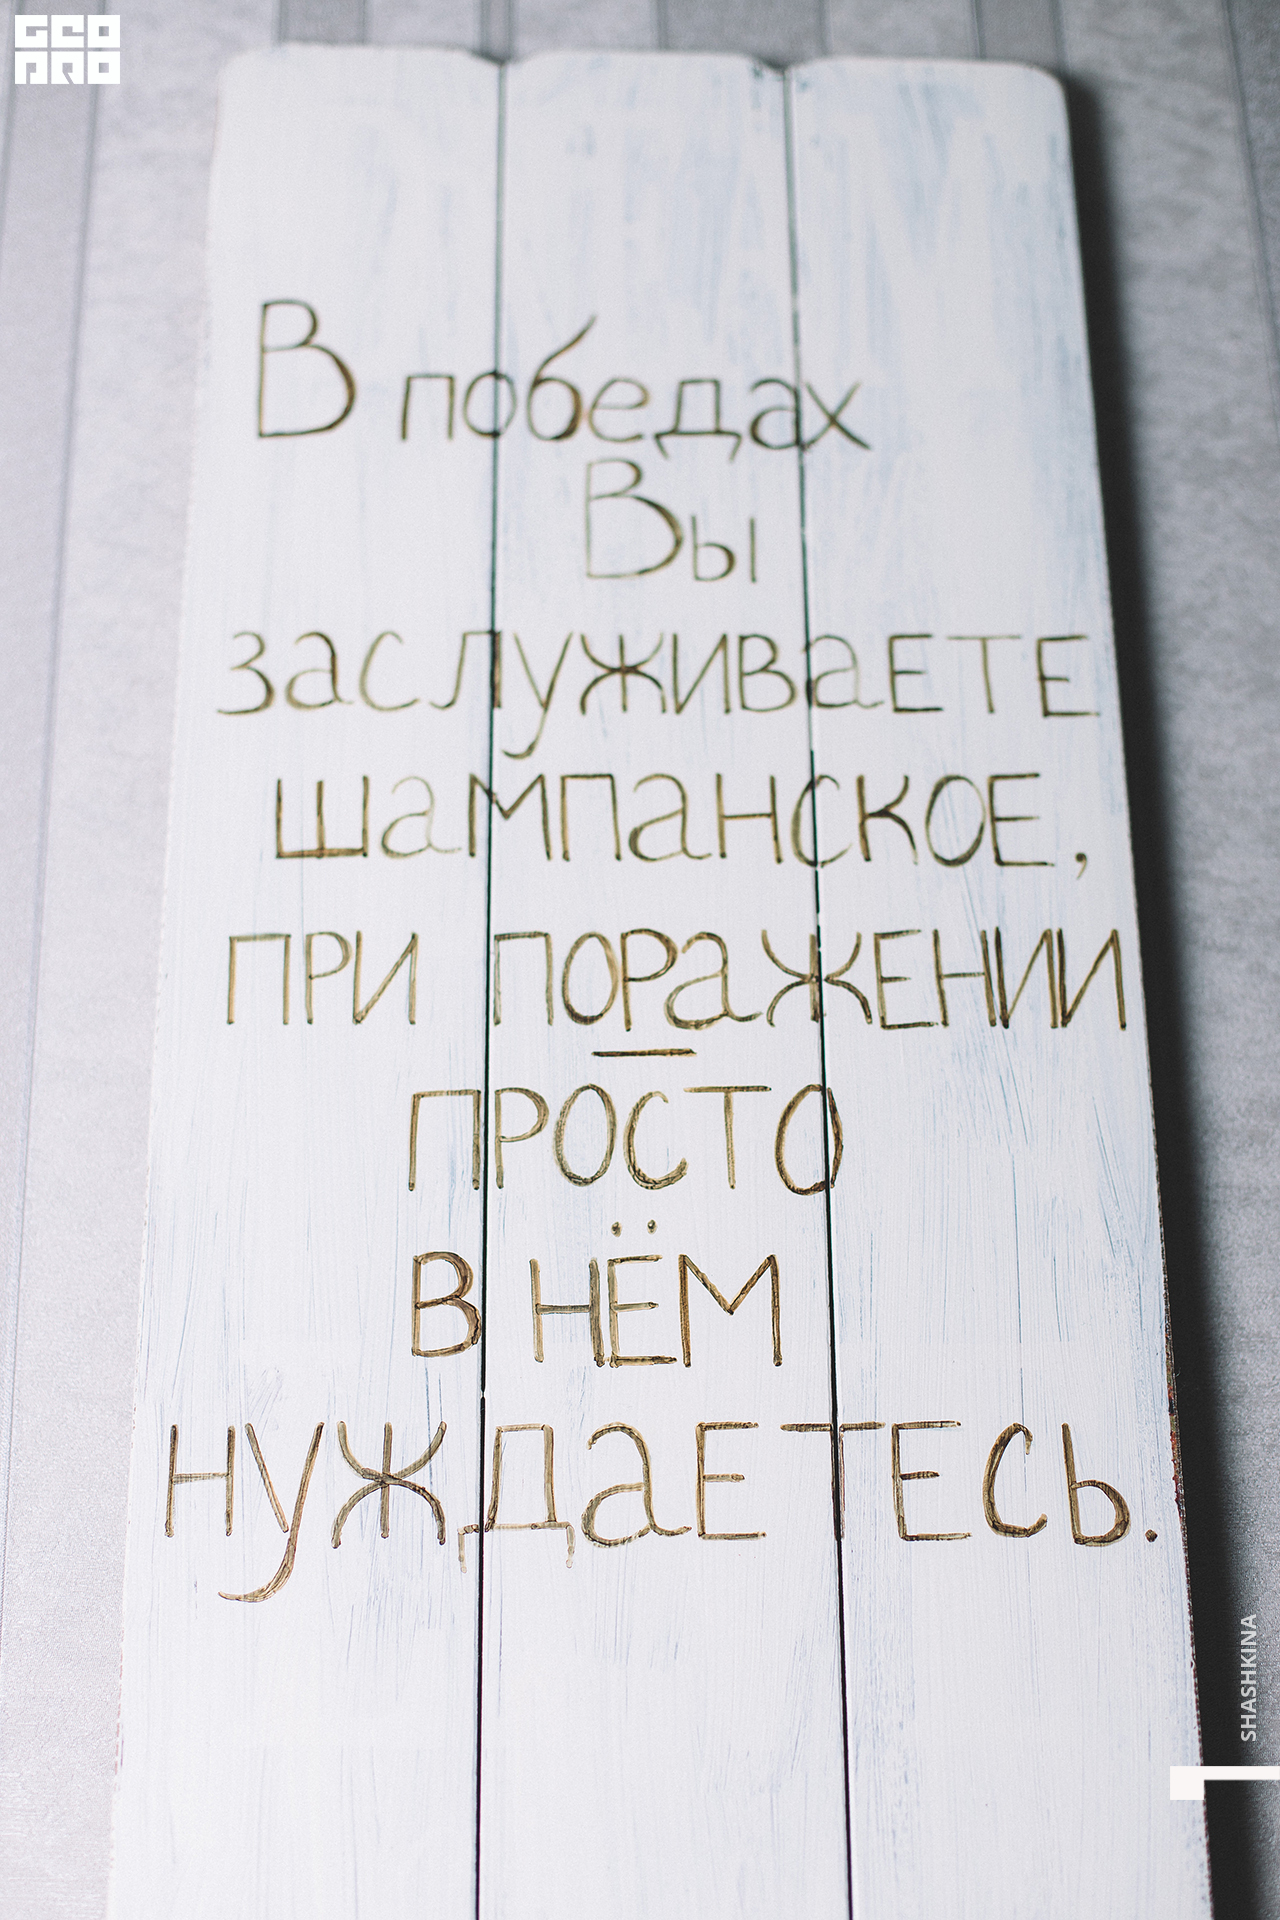 GEO
PRO
В победах
Вы
заслуживаете
шампанское,
при поражении
–
просто
в нём
нуждаетесь.
SHASHKINA